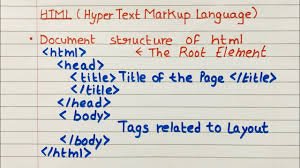 HTML (Hyper Text Markup Language)
• Document structure of html
<html> ← The Root Element
<head>
<title> Title of the Page </title>
</title>
</head>
< body>
Tags related to Layout
</body>
</html>